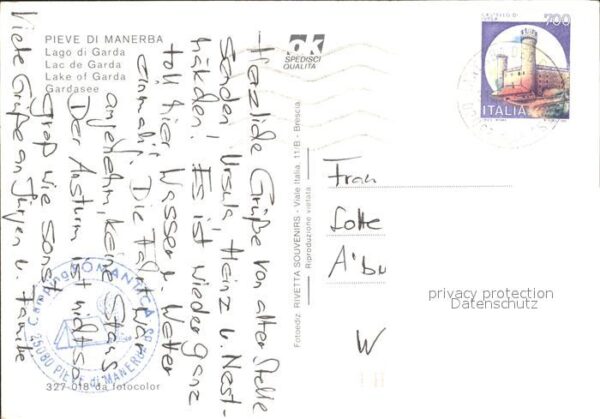 PIEVE DI MANERBA
Lago di Garda
Lac de Garda
Lake of Garda
Gardasee
OK
SPEDISCI
QUALITÀ
CASTELLO DI
IVREA
700
ITALIA
Herzliche Grüße von alter Stelle
senden Ursula, Heinz u. Nest-
häkchen! Es ist wieder ganz
toll hier. Wasser u. Wetter
einmalig. Die Fahrt war
angenehm, keine Staus.
Der Ansturm ist nicht so
groß wie sonst.
Viele Grüße an Jürgen u. Familie
Fotoediz. RIVETTA SOUVENIRS - Viale Italia, 11/B - Brescia
Riproduzione vietata
Frau
Lotte
W
privacy protection
Datenschutz
Camping ROMANTICA
25080 PIEVE di MANERBA
327-018 da fotocolor